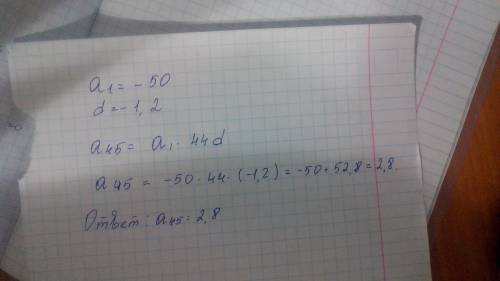 a1 = - 50
d = - 1, 2
a45 = a1 · 44d
a45 = -50 · 44 · (-1,2) = -50 + 52,8 = 2,8.
Ответ: a45 = 2,8